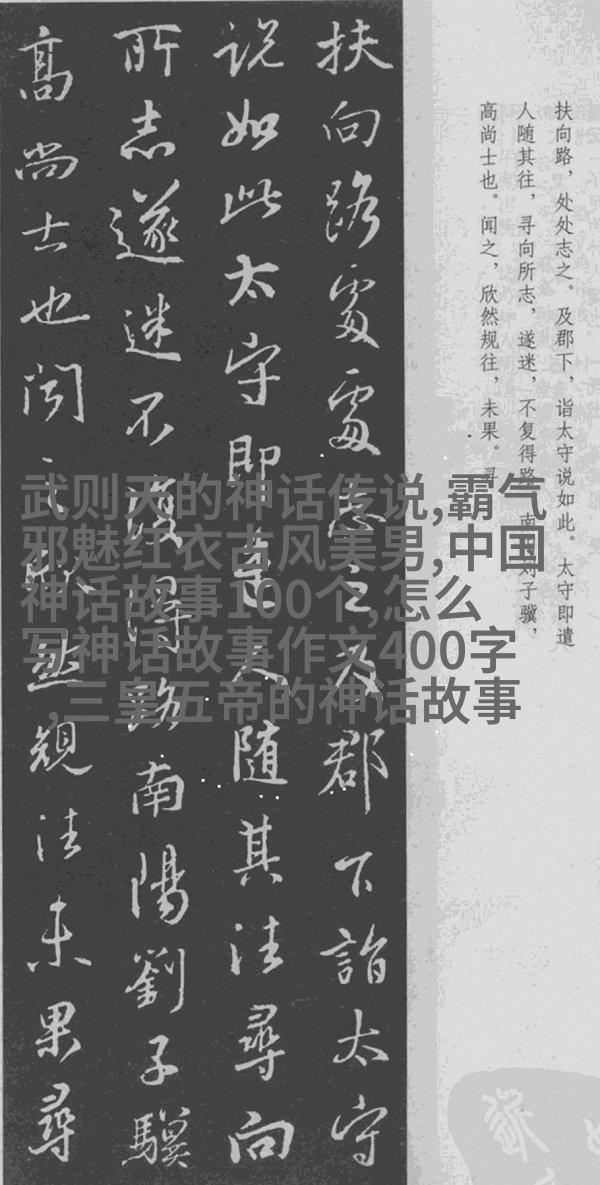 扶向路，处处志之。及郡下，诣太守说如此。太守即遣
人随其往，寻向所志，遂迷，不复得路。南阳刘子骥，
高尚士也。闻之，欣然规往，未果。寻
扶向路處處志之及郡下詣太守
説如此太守即遣人随其往尋向
所志遂迷不復得路南陽劉子驥
高尚士也闻之欣然規往未果尋
武则天的神话传说,霸气
邪魅红衣古风美男,中国
神话故事100个,怎么
写神话故事作文400字
,三皇五帝的神话故事